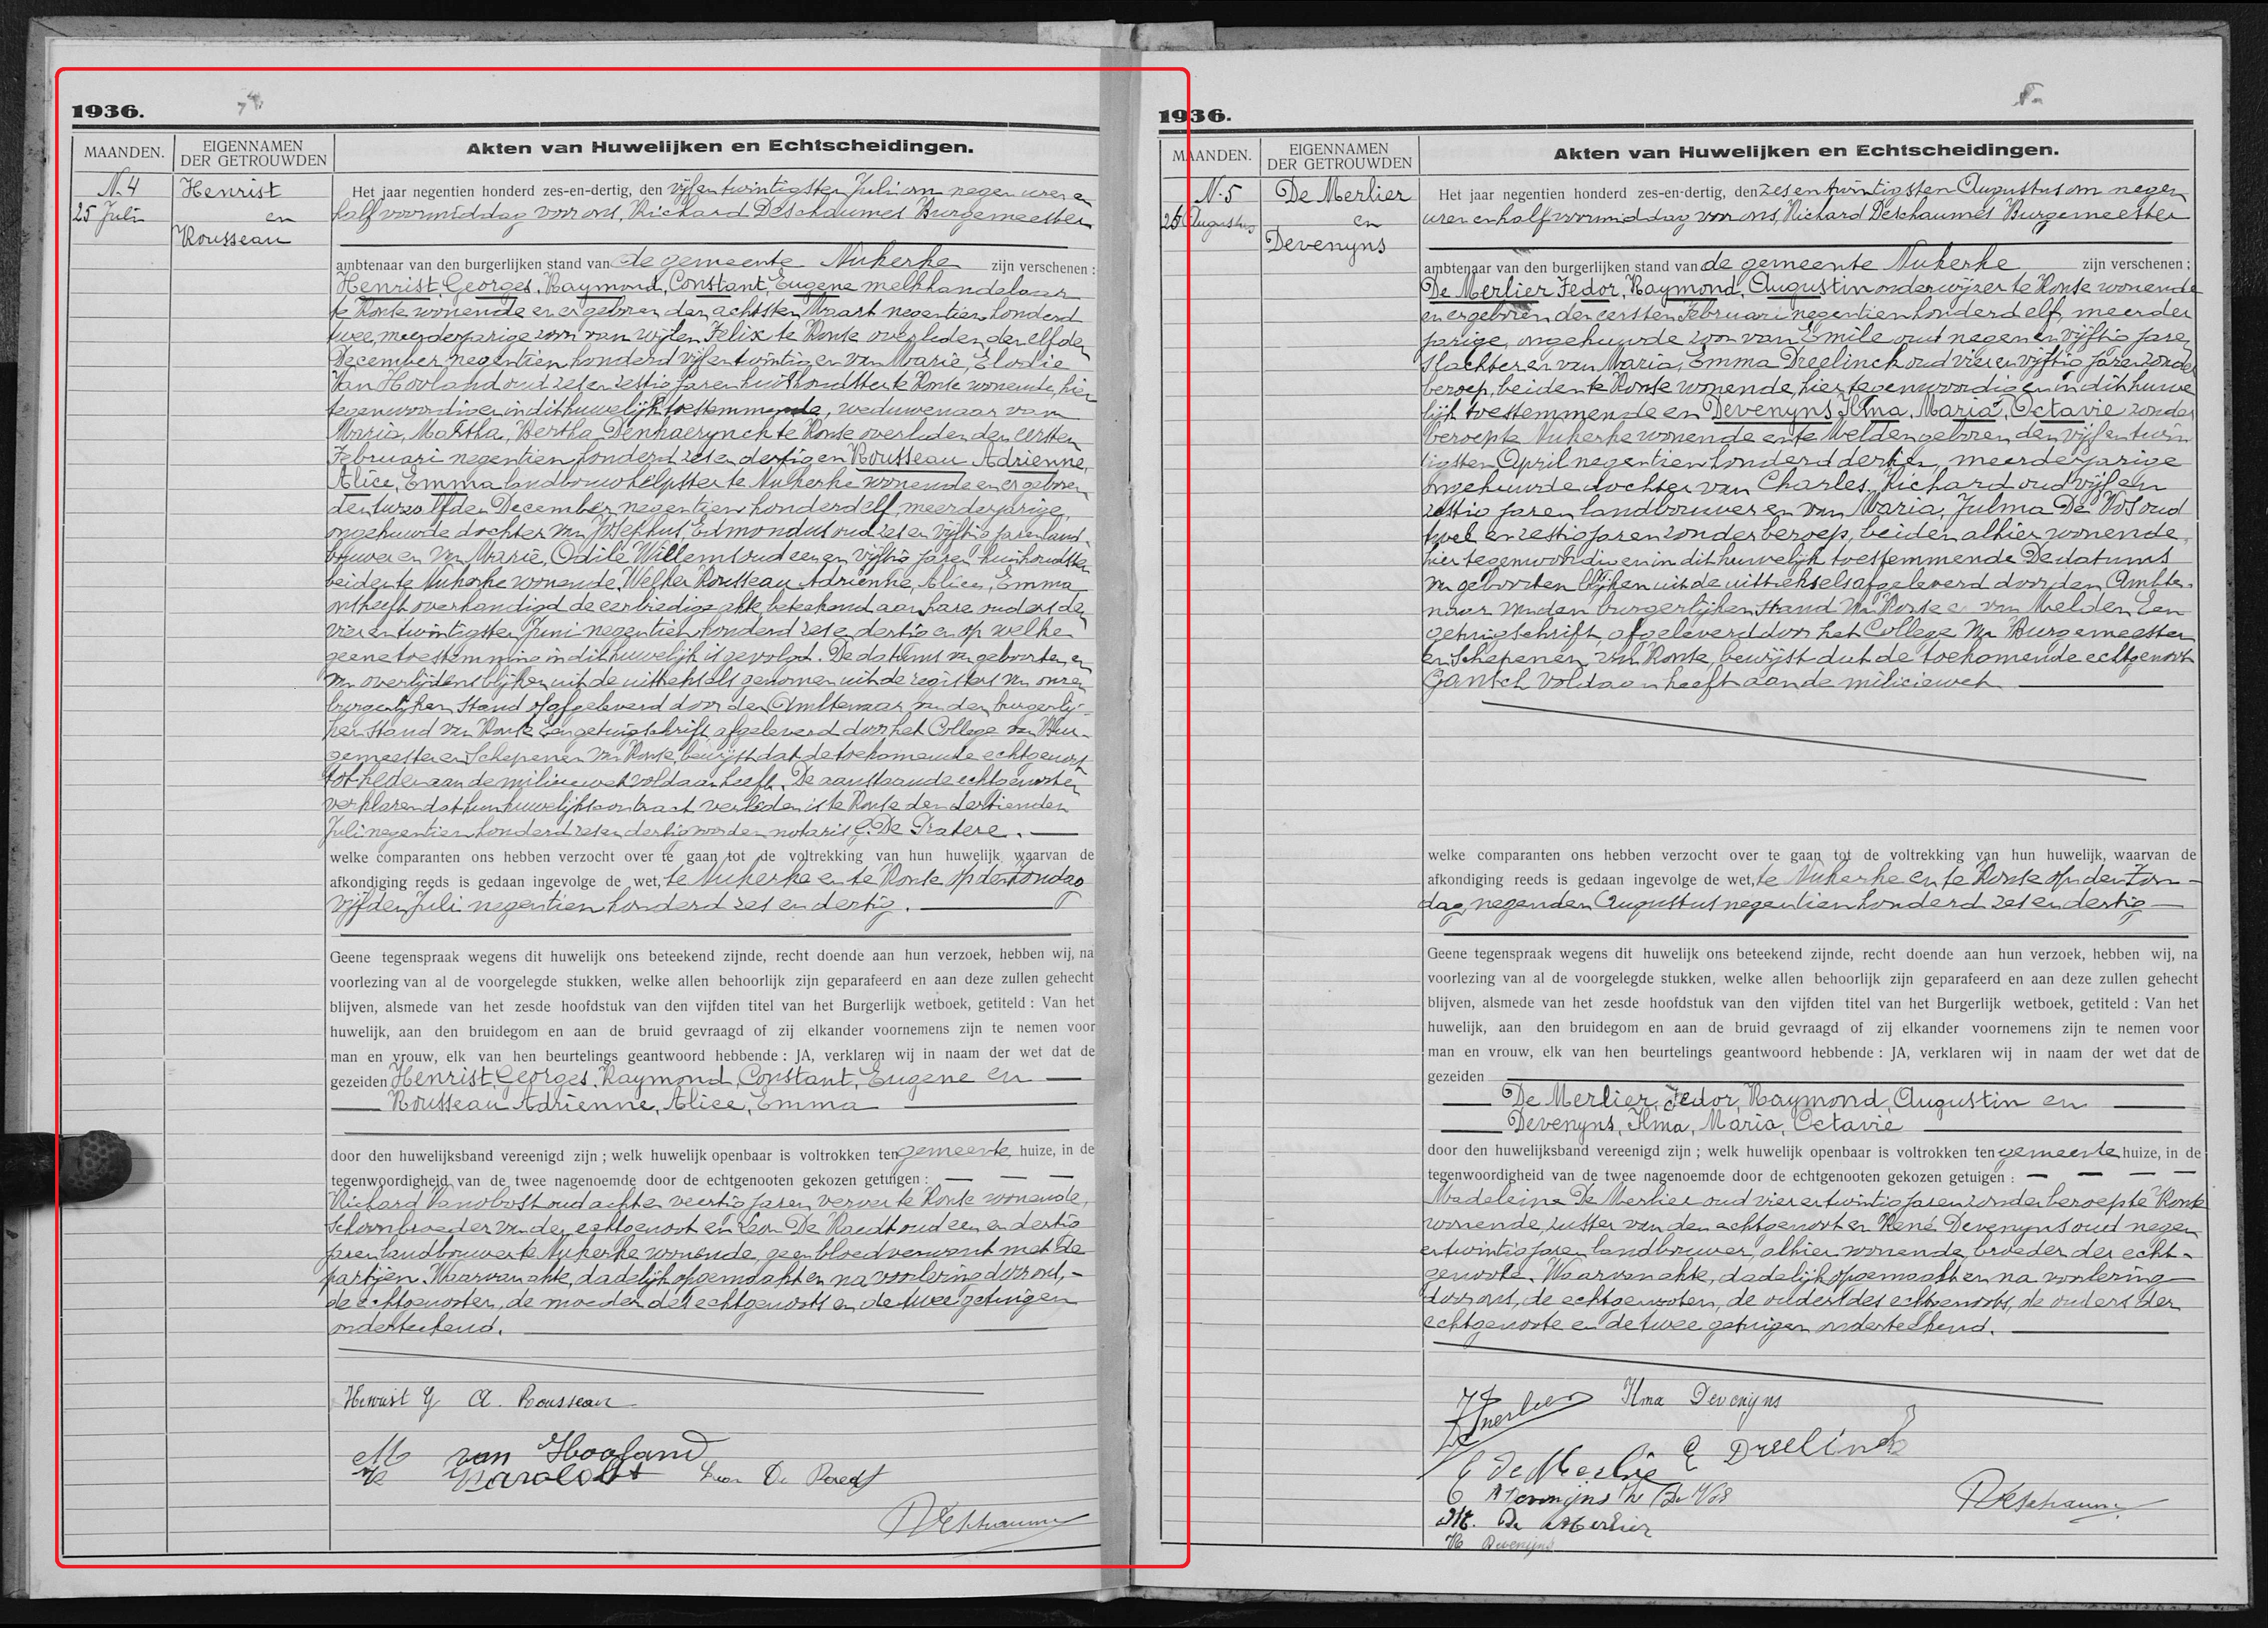 1936.
MAANDEN.
EIGENNAMEN
DER GETROUWDEN
Akten van Huwelijken en Echtscheidingen.
N. 4
25 Juli
Henrist
en
Rousseau
Het jaar negentien honderd zes-en-dertig, den vijfentwintigsten Juli om negen uren en
half voormiddag voor ons, Richard Deschaumes Burgemeester
ambtenaar van den burgerlijken stand van de gemeente Nukerke zijn verschenen :
Henrist, Georges, Raymond, Constant, Eugene melkhandelaar
te Ronse wonende en er geboren den achtsten Maart negentien honderd
twee, meerderjarige zoon van wijlen Felix te Ronse overleden den elfden
December negentien honderd vijfentwintig en van Marie, Elodie
Van Hooland oud zesenzestig jaren huishoudster te Ronse wonende, hier
tegenwoordig en in dit huwelijk toestemmende, weduwenaar van
Maria, Martha, Bertha Denhaerynck te Ronse overleden den eersten
Februari negentien honderd zes en dertig en Rousseau Adrienne,
Alice, Emma landbouwhelpster te Nukerke wonende en er geboren
den twaalfden December negentien honderd elf, meerderjarige,
ongehuwde dochter van Josephus, Edmondus oud zes en vijftig jaren land-
bouwer en van Marie, Odile Willems oud een en vijftig jaren huishoudster
beiden te Nukerke wonende. Welke Rousseau Adrienne, Alice, Emma
ons heeft overhandigd de eerbiedige akte beteekend aan hare ouders den
vier en twintigsten Juni negentien honderd zes en dertig en op welke
geene toestemming in dit huwelijk is gevolgd. De datums van geboorten en
van overlijdens blijken uit de uittreksels genomen uit de registers van onzen
burgerlijken stand of afgeleverd door den Ambtenaar van den burgerlij-
ken stand van Ronse Een getuigschrift afgeleverd door het College van Bur-
gemeester en Schepenen van Ronse, bewijst dat de toekomende echtgenoot
tot heden aan de militiewet voldaan heeft. De aanstaande echtgenooten
verklaren dat hun huwelijkscontract verleden is te Ronse den dertienden
Juli negentien honderd zes en dertig voor den notaris G. De Pratere.
welke comparanten ons hebben verzocht over te gaan tot de voltrekking van hun huwelijk, waarvan de
afkondiging reeds is gedaan ingevolge de wet, te Nukerke en te Ronse op den Zondag
vijfden Juli negentien honderd zes en dertig.
Geene tegenspraak wegens dit huwelijk ons beteekend zijnde, recht doende aan hun verzoek, hebben wij, na
voorlezing van al de voorgelegde stukken, welke allen behoorlijk zijn geparafeerd en aan deze zullen gehecht
blijven, alsmede van het zesde hoofdstuk van den vijfden titel van het Burgerlijk wetboek, getiteld : Van het
huwelijk, aan den bruidegom en aan de bruid gevraagd of zij elkander voornemens zijn te nemen voor
man en vrouw, elk van hen beurtelings geantwoord hebbende : JA, verklaren wij in naam der wet dat de
gezeiden Henrist, Georges, Raymond, Constant, Eugene en
Rousseau Adrienne, Alice, Emma
door den huwelijksband vereenigd zijn ; welk huwelijk openbaar is voltrokken ten gemeente huize, in de
tegenwoordigheid van de twee nagenoemde door de echtgenooten gekozen getuigen :
Richard oud acht en veertig jaren, verver te Ronse wonende,
schoonbroeder van den echtgenoot en Leon De Raedt oud een en dertig
jaren landbouwer te Nukerke wonende, geen bloedverwant met de
partijen. Waarvan akte, dadelijk opgemaakt en na voorlezing door ons,
de echtgenooten, de moeder des echtgenoots en de twee getuigen
onderteekend.
Henrist G A. Rousseau
M van Hooland
Leon De Raedt
RDeschaumes
1936.
MAANDEN.
EIGENNAMEN
DER GETROUWDEN
Akten van Huwelijken en Echtscheidingen.
N. 5
26 Augustus
De Merlier
en
Devenyns
Het jaar negentien honderd zes-en-dertig, den zesentwintigsten Augustus om negen
uren en half voormiddag voor ons, Richard Deschaumes Burgemeester
ambtenaar van den burgerlijken stand van de gemeente Nukerke zijn verschenen :
De Merlier Fedor, Raymond, Augustin onderwijzer te Ronse wonende
en er geboren den eersten Februari negentien honderd elf, meerder
jarige, ongehuwde zoon van Emile oud negen en vijftig jaren
slachter en van Maria, Emma Dreelinck oud vier en vijftig jaren zonder
beroep, beiden te Ronse wonende, hier tegenwoordig en in dit huwe
lijk toestemmende en Devenyns Ilma, Maria, Octavie zonder
beroep te Nukerke wonende en te Melden geboren den vijfentwin
tigsten April negentien honderd dertien, meerderjarige
ongehuwde dochter van Charles, Richard oud vijf en
zestig jaren landbouwer en van Maria, Julma De Vos oud
twee en zestig jaren zonder beroep, beiden alhier wonende,
hier tegenwoordig en in dit huwelijk toestemmende De datums
van geboorten blijken uit de uittreksels afgeleverd door den Ambte-
naar van den burgerlijken stand van Ronse en van Melden. Een
getuigschrift afgeleverd door het College van Burgemeester
en Schepenen van Ronse, bewijst dat de toekomende echtgenoot
gansch voldaan heeft aan de militiewet
welke comparanten ons hebben verzocht over te gaan tot de voltrekking van hun huwelijk, waarvan de
afkondiging reeds is gedaan ingevolge de wet, te Nukerke en te Ronse op den Zon-
dag negenden Augustus negentien honderd zes en dertig
Geene tegenspraak wegens dit huwelijk ons beteekend zijnde, recht doende aan hun verzoek, hebben wij, na
voorlezing van al de voorgelegde stukken, welke allen behoorlijk zijn geparafeerd en aan deze zullen gehecht
blijven, alsmede van het zesde hoofdstuk van den vijfden titel van het Burgerlijk wetboek, getiteld : Van het
huwelijk, aan den bruidegom en aan de bruid gevraagd of zij elkander voornemens zijn te nemen voor
man en vrouw, elk van hen beurtelings geantwoord hebbende : JA, verklaren wij in naam der wet dat de
gezeiden
De Merlier, Fedor, Raymond, Augustin en
Devenyns, Ilma, Maria, Octavie
door den huwelijksband vereenigd zijn ; welk huwelijk openbaar is voltrokken ten gemeente huize, in de
tegenwoordigheid van de twee nagenoemde door de echtgenooten gekozen getuigen :
Madeleine De Merlier oud vier en twintig jaren zonder beroep te Ronse
wonende, zuster van den echtgenoot en René Devenyns oud negen
en twintig jaren landbouwer, alhier wonende, broeder der echt-
genoote. Waarvan akte, dadelijk opgemaakt en na voorlezing
door ons, de echtgenooten, de ouders des echtgenoots, de ouders der
echtgenoote en de twee getuigen onderteekend.
Ilma Devenyns
E De Merlier E Dreelinck
C Devenyns De Vos
RDeschaumes
M. De Merlier
R Devenyns